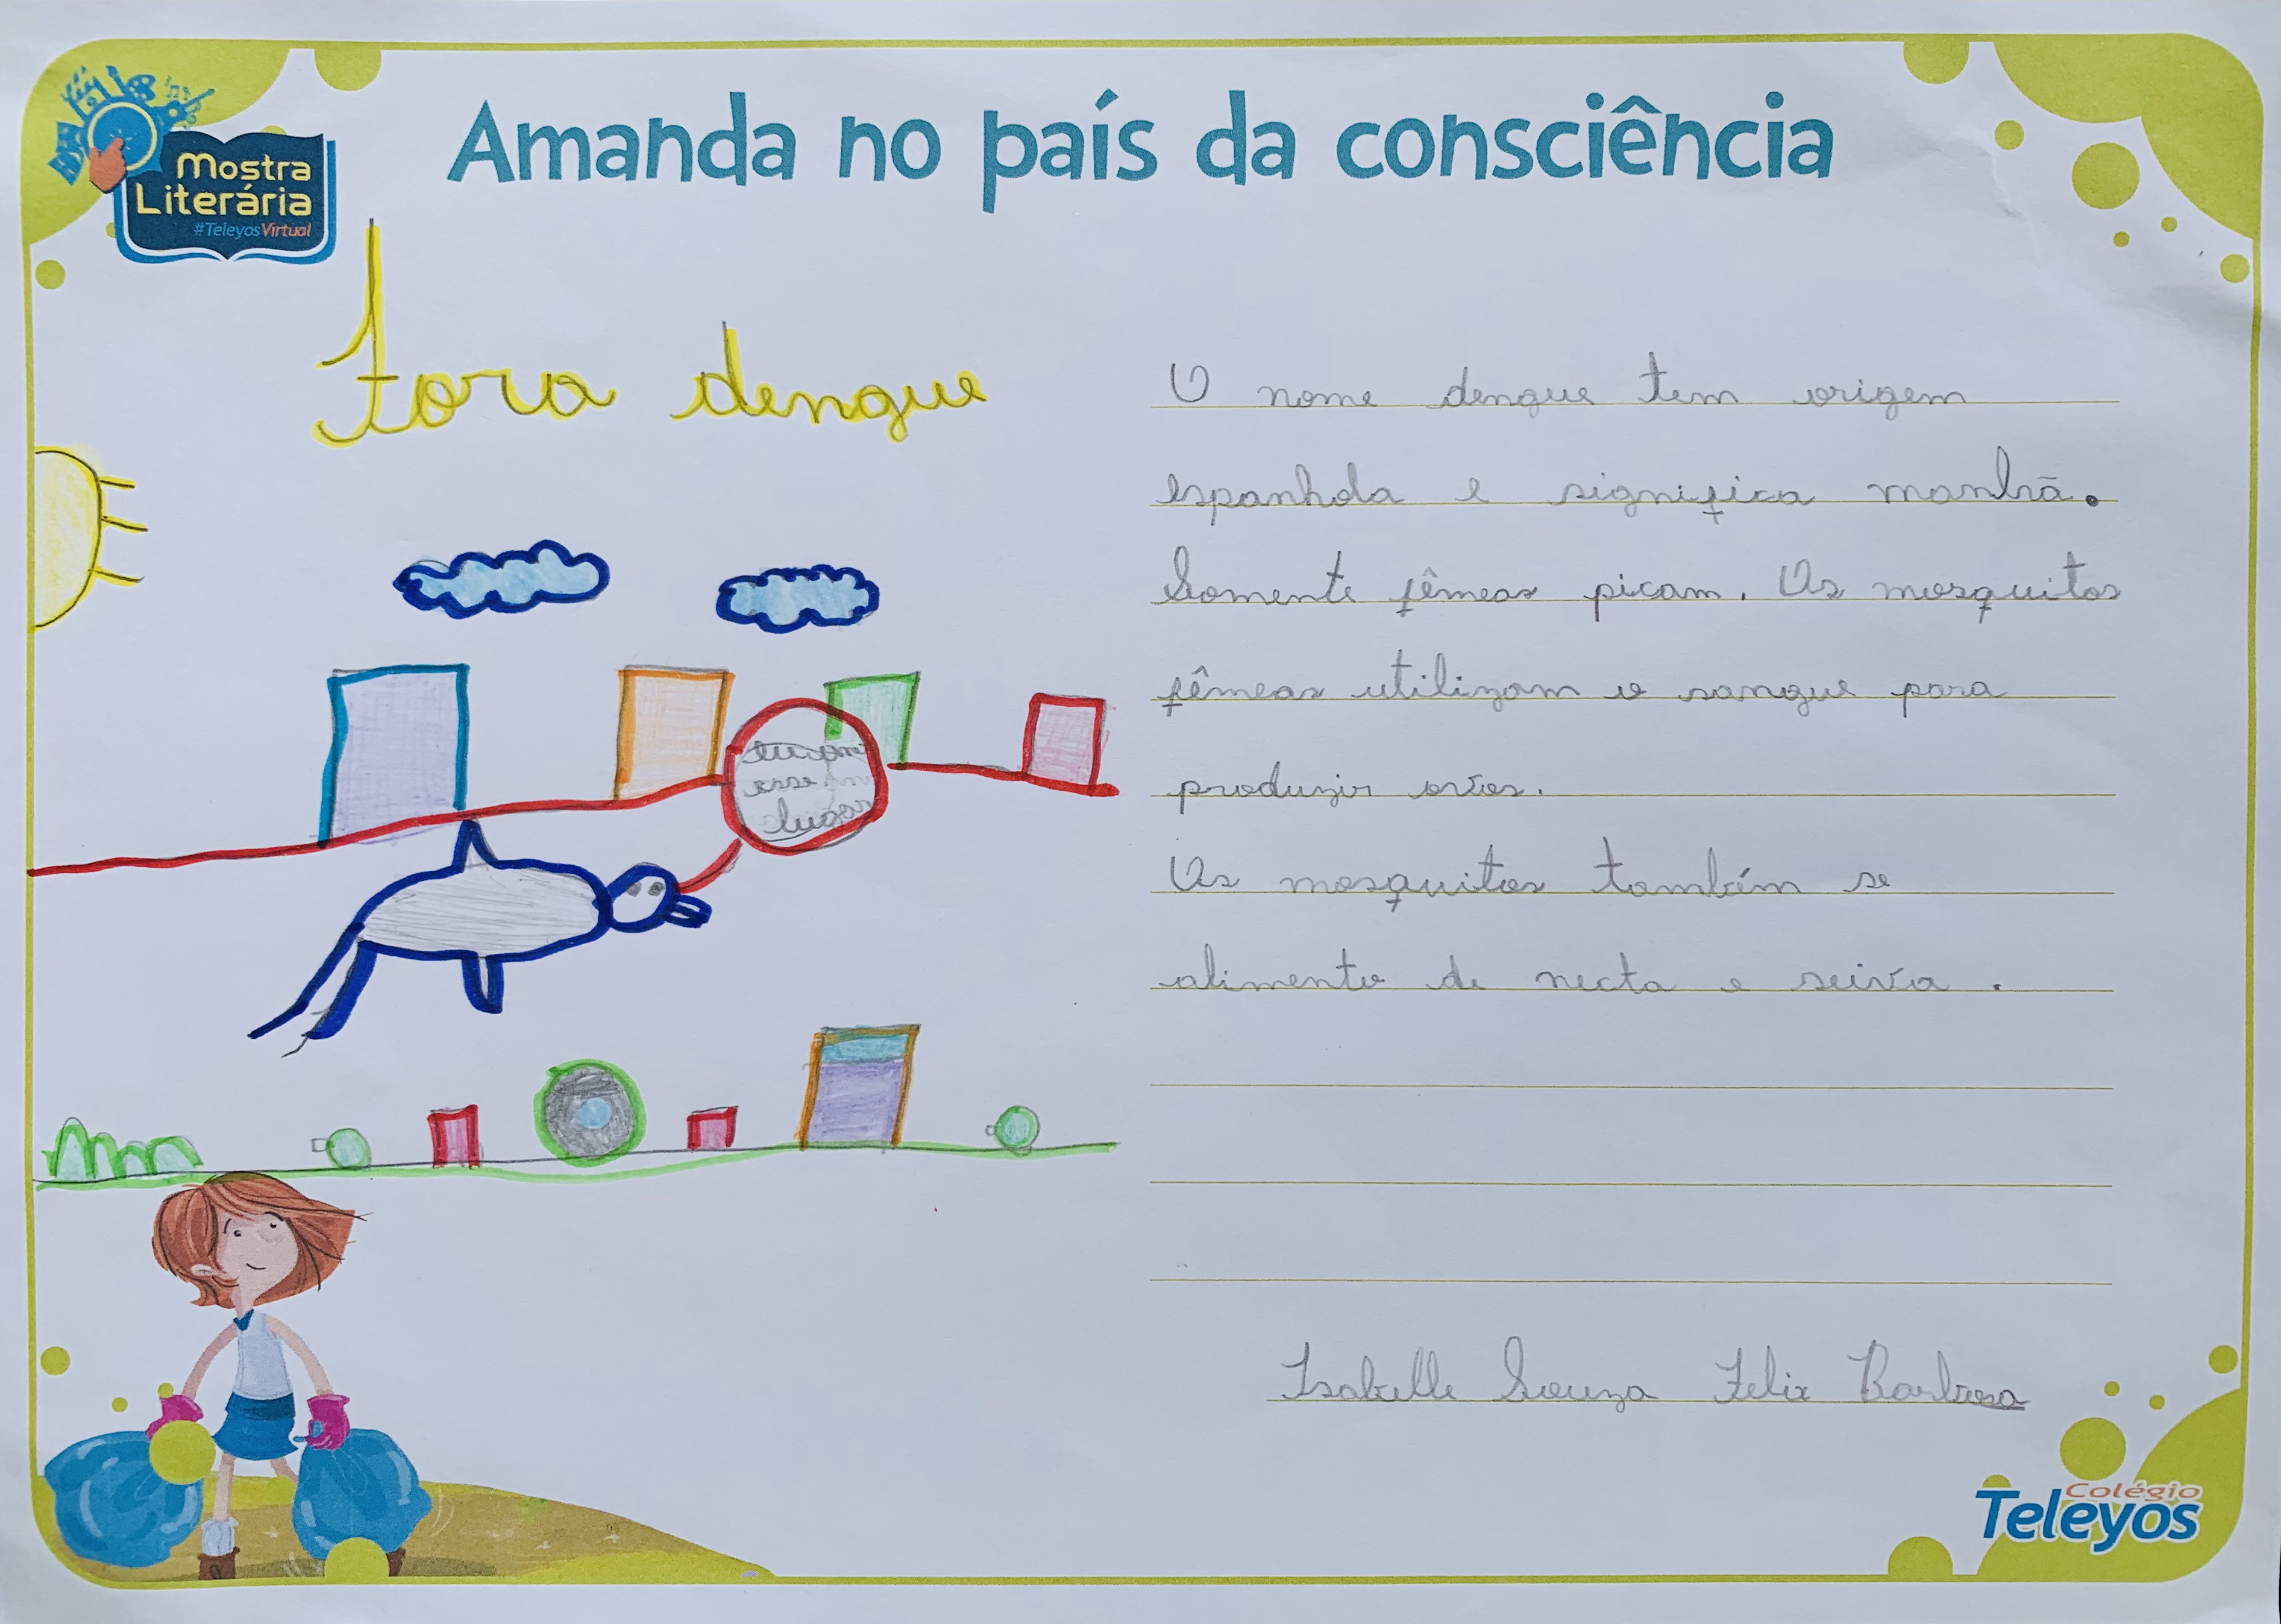 Amanda no país da consciência
Mostra
Literária
#TeleyosVirtual
Fora dengue
O nome dengue tem origem
espanhola e significa manhã.
Somente fêmeas picam. Os mosquitos
fêmeas utilizam o sangue para
produzir ovos.
Os mosquitos também se
alimento de necta e seiva.
esse
lugar
Isabelle Souza Felix Barbosa
Colégio
Teleyos